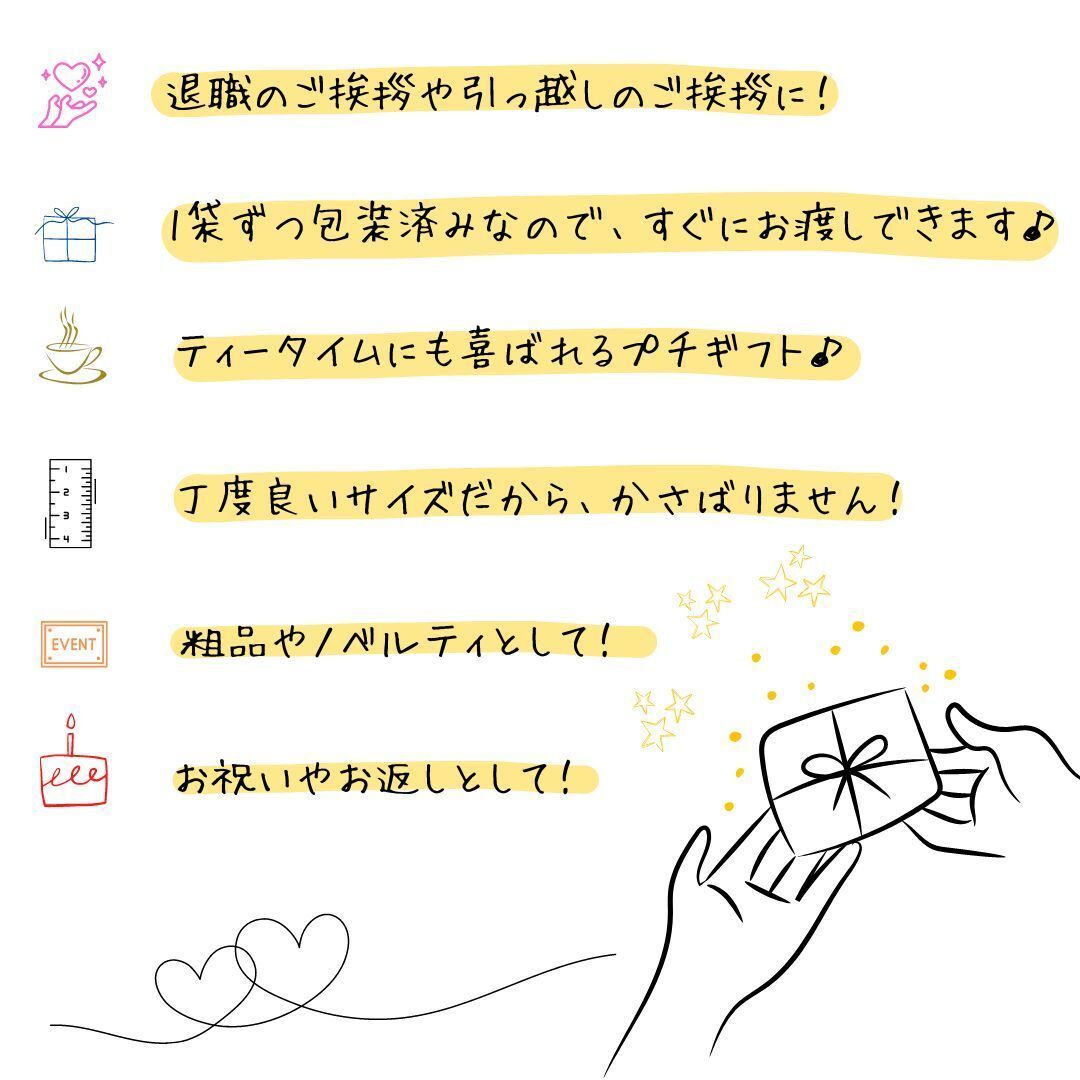 退職のご挨拶や引っ越しのご挨拶に!
1袋ずつ包装済みなので、すぐにお渡しできます♪
ティータイムにも喜ばれるプチギフト♪
1
2
3
4
丁度良いサイズだから、かさばりません!
EVENT
粗品やノベルティとして!
お祝いやお返しとして!